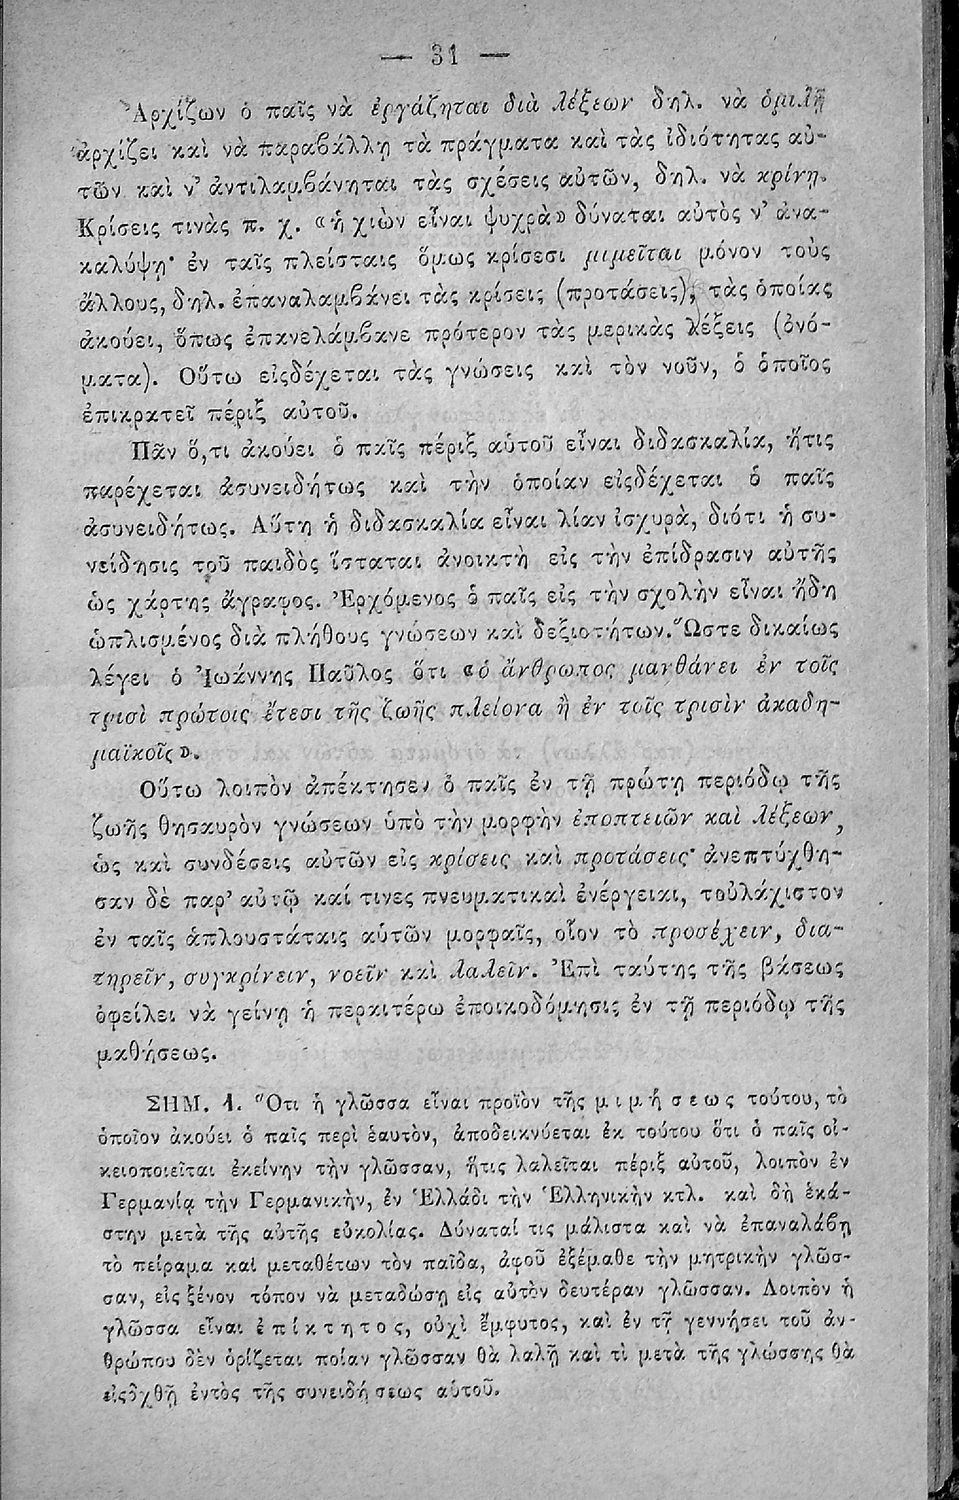 — 31 —
Ἀρχίζων ὁ παῖς νὰ ἐργάζηται διὰ λέξεων δηλ. νὰ ὁμιλῇ
ἀρχίζει καὶ νὰ παραβάλλῃ τὰ πράγματα καὶ τὰς ἰδιότητας αὐ-
τῶν καὶ ν’ ἀντιλαμβάνηται τὰς σχέσεις αὐτῶν, δηλ. νὰ κρίνῃ.
Κρίσεις τινὰς π. χ. «ἡ χιὼν εἶναι ψυχρὰ» δύναται αὐτὸς ν’ ἀνα-
καλύψῃ· ἐν ταῖς πλείσταις ὅμως κρίσεσι μιμεῖται μόνον τοὺς
ἄλλους, δηλ. ἐπαναλαμβάνει τὰς κρίσεις (προτάσεις), τὰς ὁποίας
ἀκούει, ὅπως ἐπανελάμβανε πρότερον τὰς μερικὰς λέξεις (ὀνό-
ματα). Οὕτω εἰςδέχεται τὰς γνώσεις καὶ τὸν νοῦν, ὁ ὁποῖος
ἐπικρατεῖ πέριξ αὐτοῦ.
Πᾶν ὅ,τι ἀκούει ὁ παῖς πέριξ αὑτοῦ εἶναι διδασκαλία, ἥτις
παρέχεται ἀσυνειδήτως καὶ τὴν ὁποίαν εἰςδέχεται ὁ παῖς
ἀσυνειδήτως. Αὕτη ἡ διδασκαλία εἶναι λίαν ἰσχυρὰ, διότι ἡ συ-
νείδησις τοῦ παιδὸς ἵσταται ἀνοικτὴ εἰς τὴν ἐπίδρασιν αὐτῆς
ὡς χάρτης ἄγραφος. Ἐρχόμενος ὁ παῖς εἰς τὴν σχολὴν εἶναι ἤδη
ὡπλισμένος διὰ πλήθους γνώσεων καὶ δεξιοτήτων. Ὥστε δικαίως
λέγει ὁ Ἰωάννης Παῦλος ὅτι «ὁ ἄνθρωπος μανθάνει ἐν τοῖς
τρισὶ πρώτοις ἔτεσι τῆς ζωῆς πλείονα ἢ ἐν τοῖς τρισὶν ἀκαδη-
μαϊκοῖς».
Οὕτω λοιπὸν ἀπέκτησεν ὁ παῖς ἐν τῇ πρώτῃ περιόδῳ τῆς
ζωῆς θησαυρὸν γνώσεων ὑπὸ τὴν μορφὴν ἐποπτειῶν καὶ λέξεων,
ὡς καὶ συνδέσεις αὐτῶν εἰς κρίσεις καὶ προτάσεις· ἀνεπτύχθη-
σαν δὲ παρ’ αὐτῷ καί τινες πνευματικαὶ ἐνέργειαι, τοὐλάχιστον
ἐν ταῖς ἁπλουστάταις αὑτῶν μορφαῖς, οἷον τὸ προσέχειν, δια-
τηρεῖν, συγκρίνειν, νοεῖν καὶ λαλεῖν. Ἐπὶ ταύτης τῆς βάσεως
ὀφείλει νὰ γείνῃ ἡ περαιτέρω ἐποικοδόμησις ἐν τῇ περιόδῳ τῆς
μαθήσεως.
ΣΗΜ. 1. Ὅτι ἡ γλῶσσα εἶναι προϊὸν τῆς μιμήσεως τούτου, τὸ
ὁποῖον ἀκούει ὁ παῖς περὶ ἑαυτὸν, ἀποδεικνύεται ἐκ τούτου ὅτι ὁ παῖς οἰ-
κειοποιεῖται ἐκείνην τὴν γλῶσσαν, ἥτις λαλεῖται πέριξ αὐτοῦ, λοιπὸν ἐν
Γερμανίᾳ τὴν Γερμανικὴν, ἐν Ἑλλάδι τὴν Ἑλληνικὴν κτλ. καὶ δὴ ἑκά-
στην μετὰ τῆς αὐτῆς εὐκολίας. Δύναταί τις μάλιστα καὶ νὰ ἐπαναλάβῃ
τὸ πείραμα καὶ μεταθέτων τὸν παῖδα, ἀφοῦ ἐξέμαθε τὴν μητρικὴν γλῶσ-
σαν, εἰς ξένον τόπον νὰ μεταδώσῃ εἰς αὐτὸν δευτέραν γλῶσσαν. Λοιπὸν ἡ
γλῶσσα εἶναι ἐπίκτητος, οὐχὶ ἔμφυτος, καὶ ἐν τῇ γεννήσει τοῦ ἀν-
θρώπου δὲν ὁρίζεται ποίαν γλῶσσαν θὰ λαλῇ καὶ τὶ μετὰ τῆς γλώσσης θὰ
εἰςδχθῇ ἐντὸς τῆς συνειδήσεως αὑτοῦ.